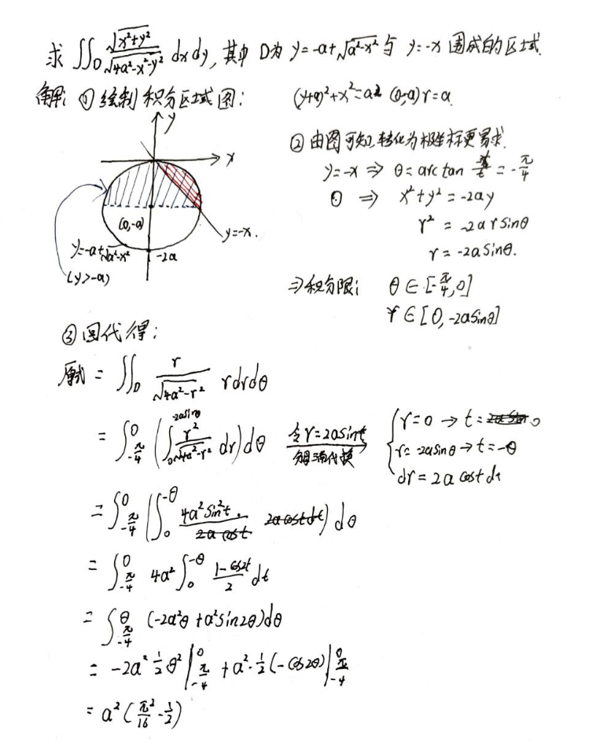 求 ∬_D √(x²+y²)/√(4a²-x²-y²) dxdy, 其中 D为 y=-a+√(a²-x²) 与 y=-x 围成的区域.
解: ① 绘制积分区域图: (y+a)²+x²=a² (0,-a) r=a.
y
x
(0,-a)
y=-x.
y=-a+√(a²-x²)
(y>-a)
-2a
② 由图可知, 转化为极坐标更易求.
y=-x ⇒ θ=arctan = -π/4
① ⇒ x²+y² = -2ay
r² = -2a r sinθ
r = -2a sinθ.
⇒ 积分限: θ∈[-π/4, 0]
r∈[0, -2a sinθ]
③ 回代得:
原式 = ∬_D r/√(4a²-r²) r dr dθ
= ∫_{-π/4}^0 (∫_0^{-2a sinθ} r²/√(4a²-r²) dr) dθ 令r=2a sint 三角代换 { r=0 → t=0
r=-2a sinθ → t=-θ
dr = 2a cost dt
= ∫_{-π/4}^0 (∫_0^{-θ} 4a² sin²t/(2a cost) · 2a cost dt) dθ
= ∫_{-π/4}^0 4a² ∫_0^{-θ} (1-cos2t)/2 dt
= ∫_{-π/4}^0 (-2a²θ + a² sin2θ) dθ
= -2a² ½ θ² |_{-π/4}^0 + a² · ½ (-cos2θ) |_{-π/4}^0
= a² (π²/16 - ½)